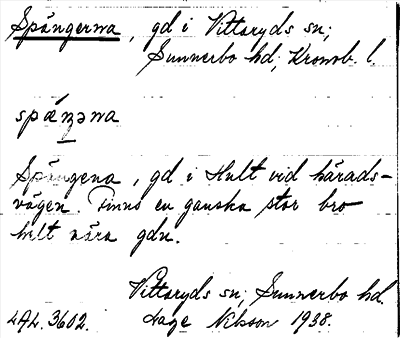 Spångerna, gd i Vittaryds sn,
Sunnerbo hd, Kronob. l.
spǽŋəna
Spångena, gd i Hult vid härads-
vägen. Finns en ganska stor bro
helt nära gdn.
Vittaryds sn, Sunnerbo hd.
LAL. 3602. Aage Nilsson 1938.